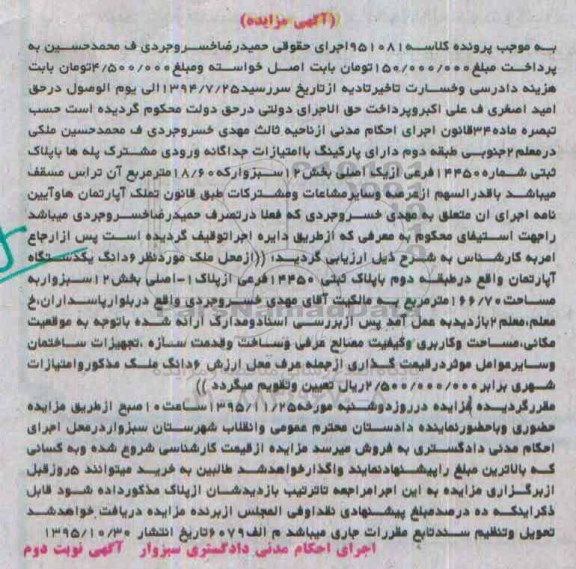 (آگهی مزایده)
به موجب پرونده کلاسه ۹۵۱۰۸۱اجرای حقوقی حمیدرضاخسروجردی ف محمدحسین به
پرداخت مبلغ۱۵۰/۰۰۰/۰۰۰تومان بابت اصل خواسته ومبلغ۴/۵۰۰/۰۰۰تومان بابت
هزینه دادرسی وخسارت تاخیرتادیه ازتاریخ سررسید۱۳۹۴/۷/۲۵الی یوم الوصول درحق
امید اصغری ف علی اکبروپرداخت حق الاجرای دولتی درحق دولت محکوم گردیده است حسب
تبصره ماده۳۴قانون اجرای احکام مدنی ازناحیه ثالث مهدی خسروجردی ف محمدحسین ملکی
درمعلم۲جنوبی طبقه دوم دارای پارکینگ باامتیازات جداگانه ورودی مشترک پله ها باپلاک
ثبتی شماره۱۴۴۵۰فرعی ازیک اصلی بخش۱۲سبزوارکه۱۸/۶۰مترمربع آن تراس مسقف
میباشد باقدرالسهم ازعرصه وسایرمشاعات ومشترکات طبق قانون تملک آپارتمان هاوآیین
نامه اجرای ان متعلق به مهدی خسروجردی که فعلا درتصرف حمیدرضاخسروجردی میباشد
راجهت استیفای محکوم به معرفی که ازطریق دایره اجراتوقیف گردیده است پس ازارجاع
امربه کارشناس به شرح ذیل ارزیابی گردید: ((ازمحل ملک موردنظر۶دانگ یکدستگاه
آپارتمان واقع درطبقه دوم باپلاک ثبتی۱۴۴۵۰فرعی ازپلاک۱-اصلی بخش۱۲سبزواربه
مساحت۱۶۶/۷۰مترمربع به مالکیت آقای مهدی خسروجردی واقع دربلوارپاسداران،خ
معلم،معلم۲بازدیدبه عمل آمد پس ازبررسی اسنادومدارک ارائه شده باتوجه به موقعیت
مکانی،مساحت وکاربری وکیفیت مصالح مصرفی وساخت وقدمت سازه ،تجهیزات ساختمان
وسایرعوامل موثردرقیمت گذاری ازجمله عرف محل ارزش ۶دانگ ملک مذکوروامتیازات
شهری برابر۲/۵۰۰/۰۰۰/۰۰۰ریال تعیین وتقویم میگردد ))
مقررگردیده مزایده درروزدوشنبه مورخه۱۳۹۵/۱۱/۲۵ساعت۱۰صبح ازطریق مزایده
حضوری وباحضورنماینده دادستان محترم عمومی وانقلاب شهرستان سبزواردرمحل اجرای
احکام مدنی دادگستری به فروش میرسد مزایده ازقیمت کارشناسی شروع شده وبه کسانی
که بالاترین مبلغ راپیشنهادنمایند واگذارخواهدشد طالبین به خرید میتوانند ۵روزقبل
ازبرگزاری مزایده به این اجرامراجعه تاترتیب بازدیدشان ازپلاک مذکورداده شود قابل
ذکراینکه ده درصدمبلغ پیشنهادی نقداوفی المجلس ازبرنده مزایده دریافت خواهدشد
تحویل وتنظیم سندتابع مقررات جاری میباشد م الف۶۰۷۹تاریخ انتشار ۱۳۹۵/۱۰/۳۰
اجرای احکام مدنی دادگستری سبزوار آگهی نوبت دوم